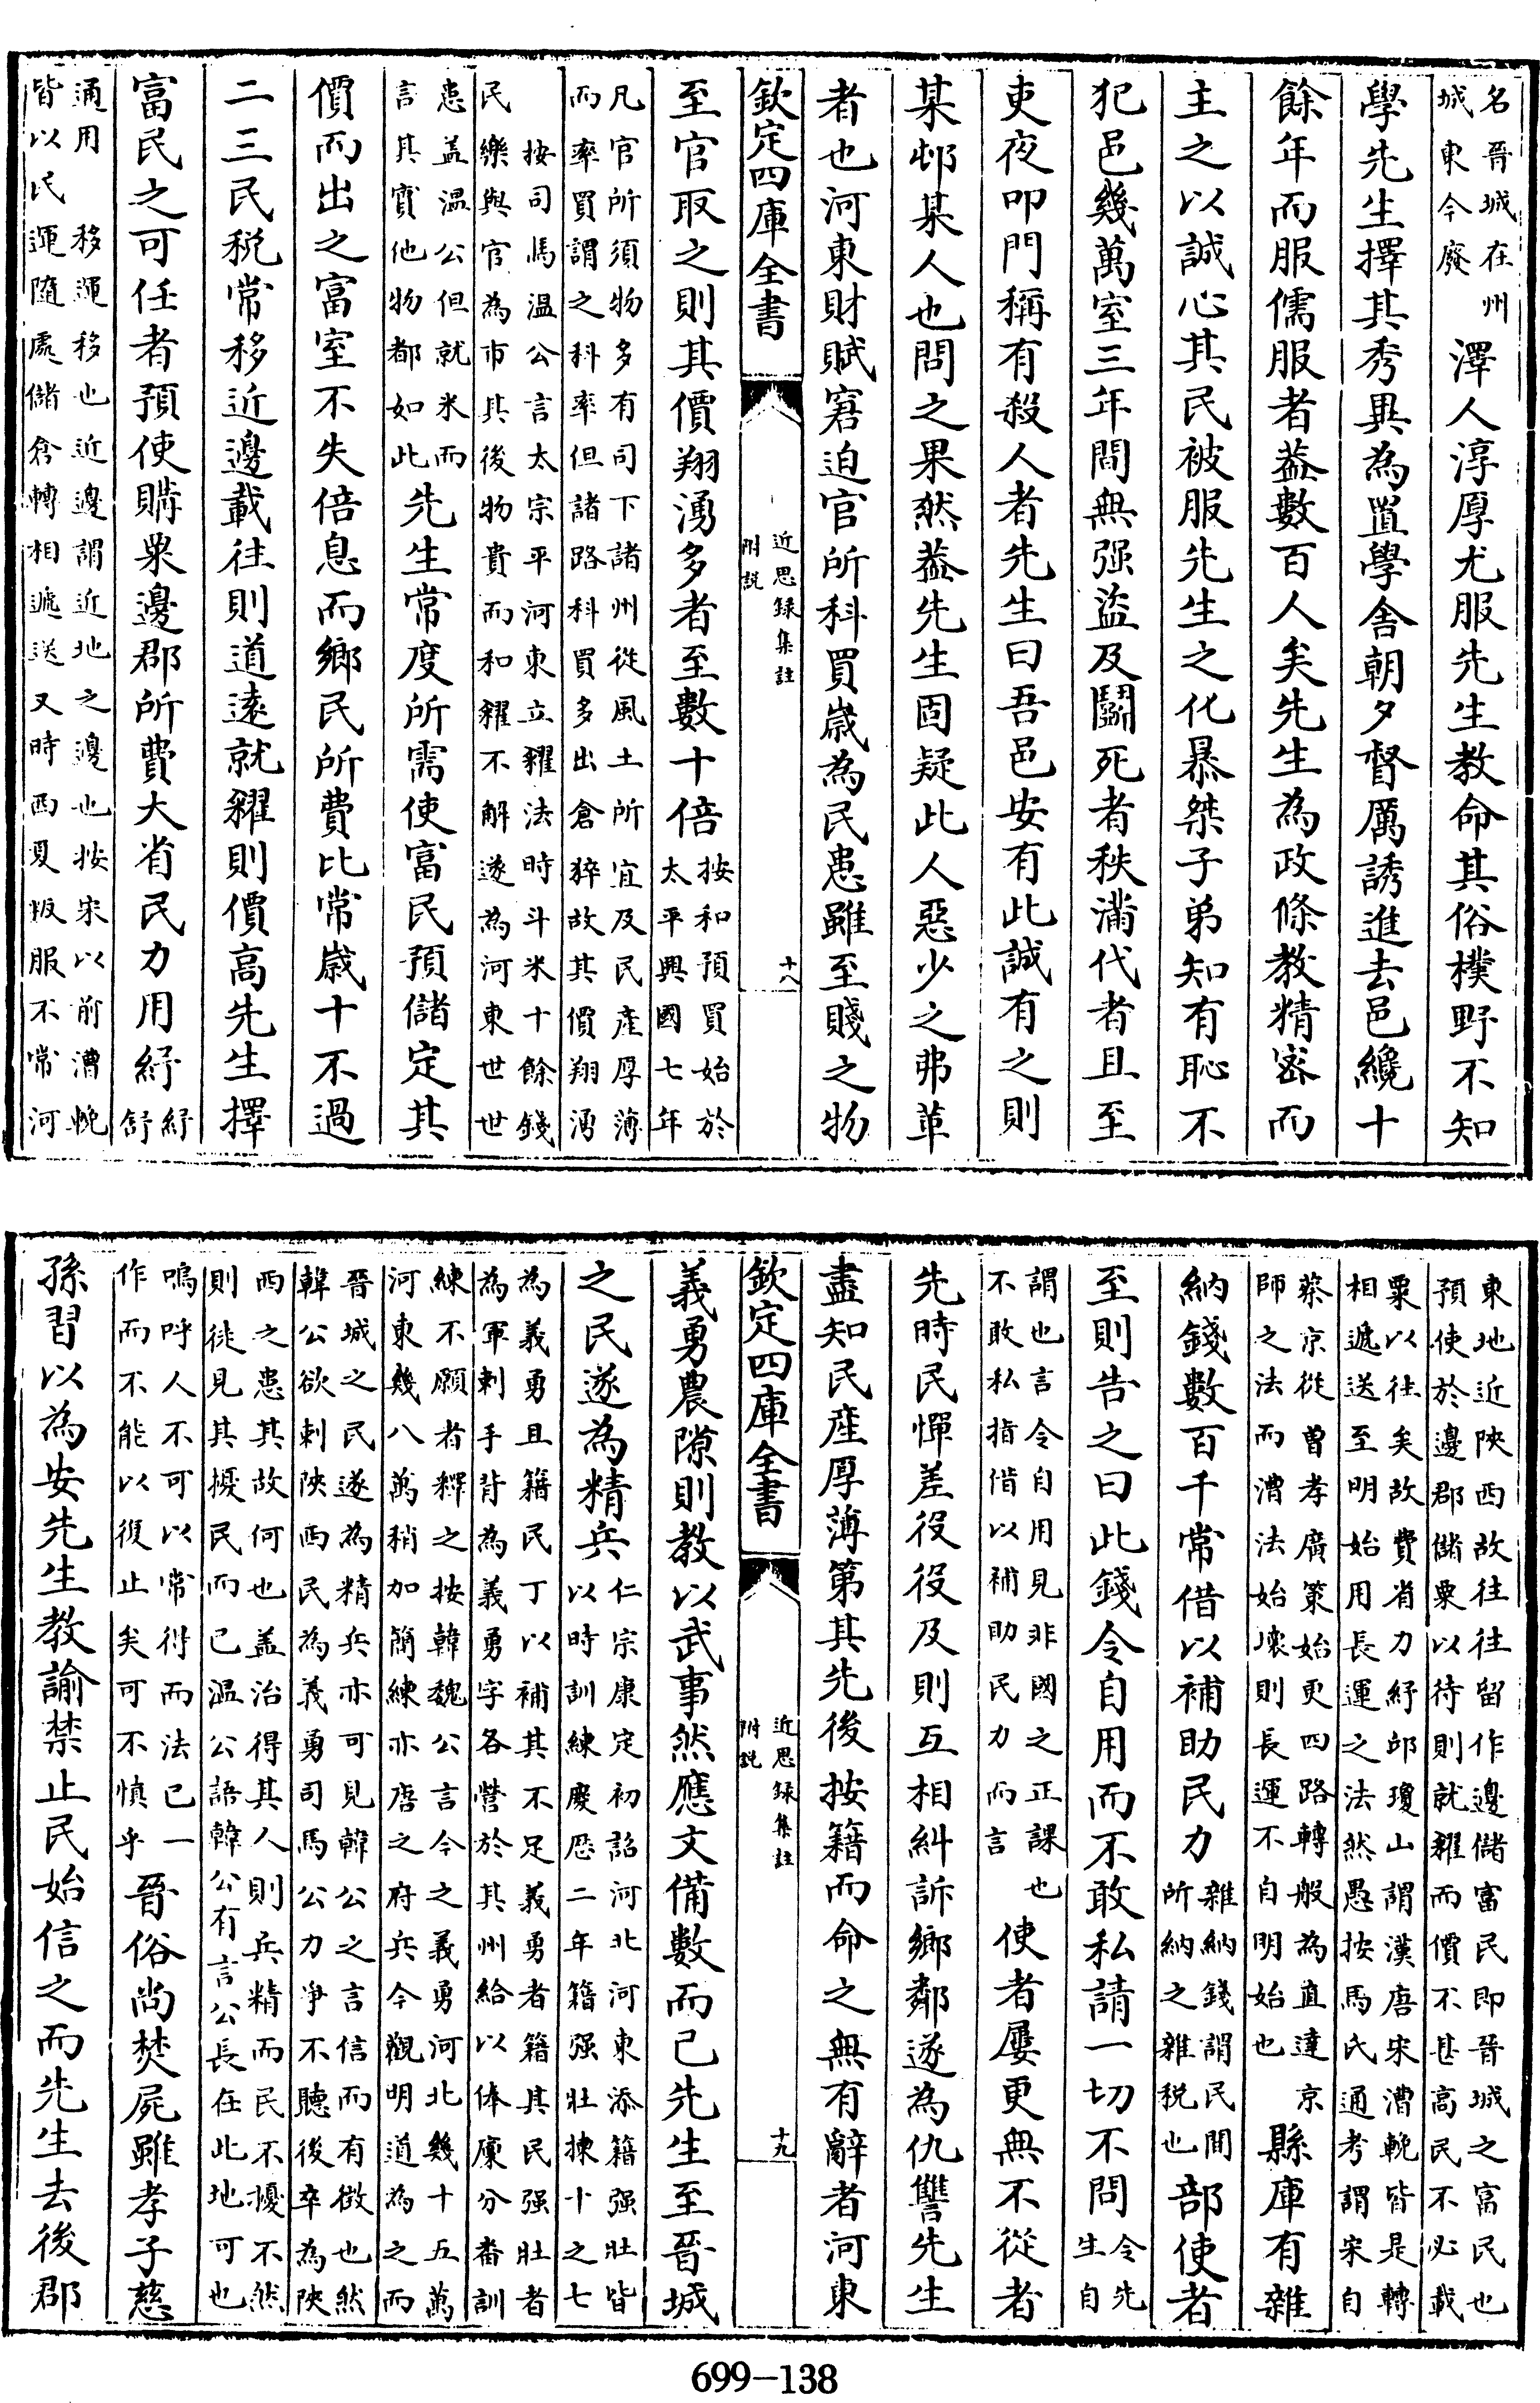 名晉城在州城東今廢澤人淳厚尤服先生教命其俗樸野不知
學先生擇其秀異為置學舍朝夕督厲誘進去邑纔十
餘年而服儒服者葢數百人矣先生為政條教精密而
主之以誠心其民被服先生之化暴桀子弟知有恥不
犯邑幾萬室三年間無强盜及鬭死者秩滿代者且至
吏夜叩門稱有殺人者先生曰吾邑安有此誠有之則
某邨某人也問之果然葢先生固疑此人惡少之弗革
者也河東財賦窘迫官所科買嵗為民患雖至賤之物
欽定四庫全書 近思録集註附説 十八
至官取之則其價翔湧多者至數十倍按和預買始於太平興國七年
凡官所須物多有司下諸州從風土所宜及民產厚薄而率買謂之科率但諸路科買多出倉猝故其價翔湧
民按司馬溫公言太宗平河東立糴法時斗米十餘錢樂與官為市其後物貴而和糴不解遂為河東世世
患盖温公但就米而言其實他物都如此先生常度所需使富民預儲定其
價而出之富室不失倍息而鄉民所費比常嵗十不過
二三民税常移近邊載往則道遠就糴則價高先生擇
富民之可任者預使購粟邊郡所費大省民力用紓紓舒
通用移運移也近邊謂近地之邊也按宋以前漕輓皆以民運隨處儲倉轉相遞送又時西夏叛服不常河
東地近陜西故往往留作邊儲富民即晉城之富民也預使於邊郡儲粟以待則就糴而價不甚高民不必載
粟以往矣故費省力紓邱瓊山謂漢唐宋漕輓皆是轉相遞送至明始用長運之法然愚按馬氏通考謂宋自
蔡京從曾孝廣策始更四路轉般為直達京師之法而漕法始壞則長運不自明始也縣庫有雜
納錢數百千常借以補助民力雜納錢謂民間所納之雜税也部使者
至則告之曰此錢令自用而不敢私請一切不問令先生自
謂也言令自用見非國之正課也不敢私指借以補助民力而言使者屢更無不從者
先時民憚差役役及則互相糾訴鄉鄰遂為仇讐先生
盡知民產厚薄第其先後按籍而命之無有辭者河東
欽定四庫全書 近思録集註附説 十九
義勇農隙則教以武事然應文備數而已先生至晉城
之民遂為精兵仁宗康定初詔河北河東添籍强壯皆以時訓練慶厯二年籍强壯揀十之七
為義勇且籍民丁以補其不足義勇者籍其民强壯者為軍刺手背為義勇字各營於其州給以俸廩分番訓
練不願者釋之按韓魏公言今之義勇河北幾十五萬河東幾八萬稍加簡練亦唐之府兵今觀明道為之而
晉城之民遂為精兵亦可見韓公之言信而有徴也然韓公欲刺陜西民為義勇司馬公力爭不聽後卒為陜
西之患其故何也盖治得其人則兵精而民不擾不然則徒見其擾民而已温公語韓公有言公長在此地可也
嗚呼人不可以常得而法已一作而不能以復止矣可不慎乎晉俗尚焚屍雖孝子慈
孫習以為安先生教諭禁止民始信之而先生去後郡
699-138